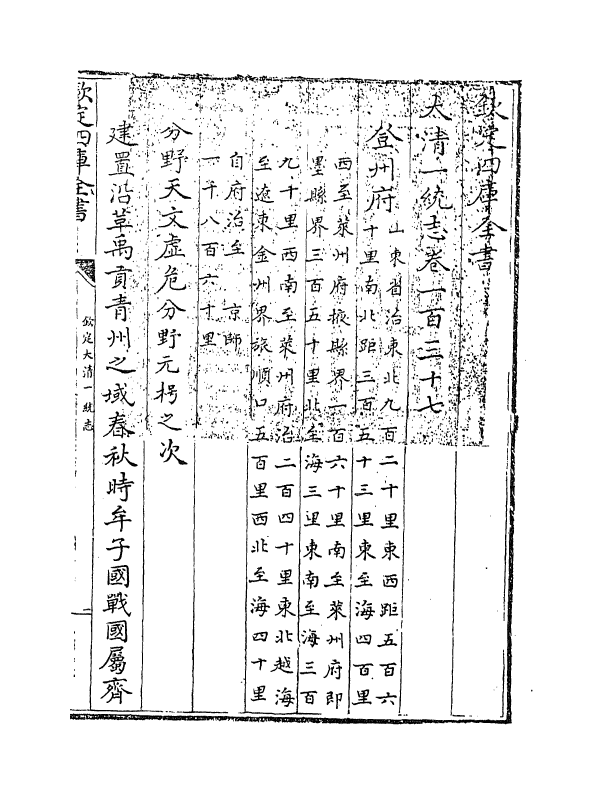 欽定四庫全書
大清一統志卷一百三十七
登州府
山東省治東北九百二十里東西距五百六
十里南北距三百五十三里東至海四百里
西至萊州府掖縣界一百六十里南至萊州府即
墨縣界三百五十里北至海三里東南至海三百
九十里西南至萊州府治二百四十里東北越海
至遼東金州界旅順口五百里西北至海四十里
自府治至 京師
一千八百六十里
分野天文虛危分野元枵之次
建置沿革禹貢青州之域春秋時牟子國戰國屬齊
欽定四庫全書
欽定大清一統志